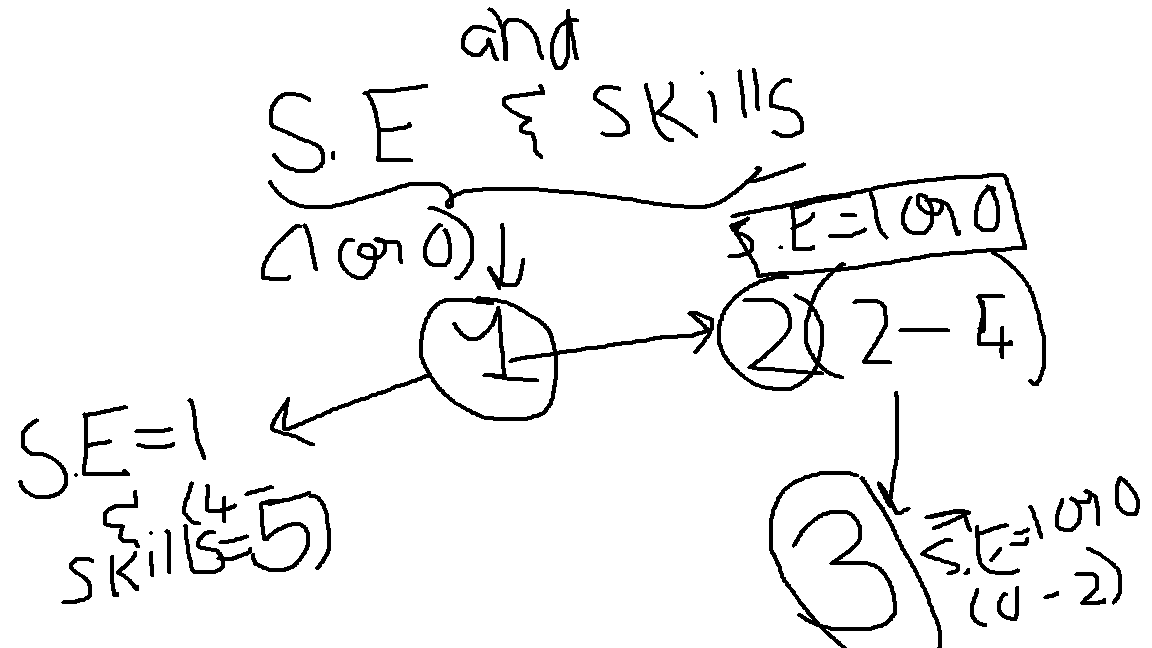 and
S.E & skills
(1 or 0)
S.E=1 or 0
1
2 (2-4)
S.E=1
& (4-
skills=5)
3
S.E=1 or 0
(0-2)